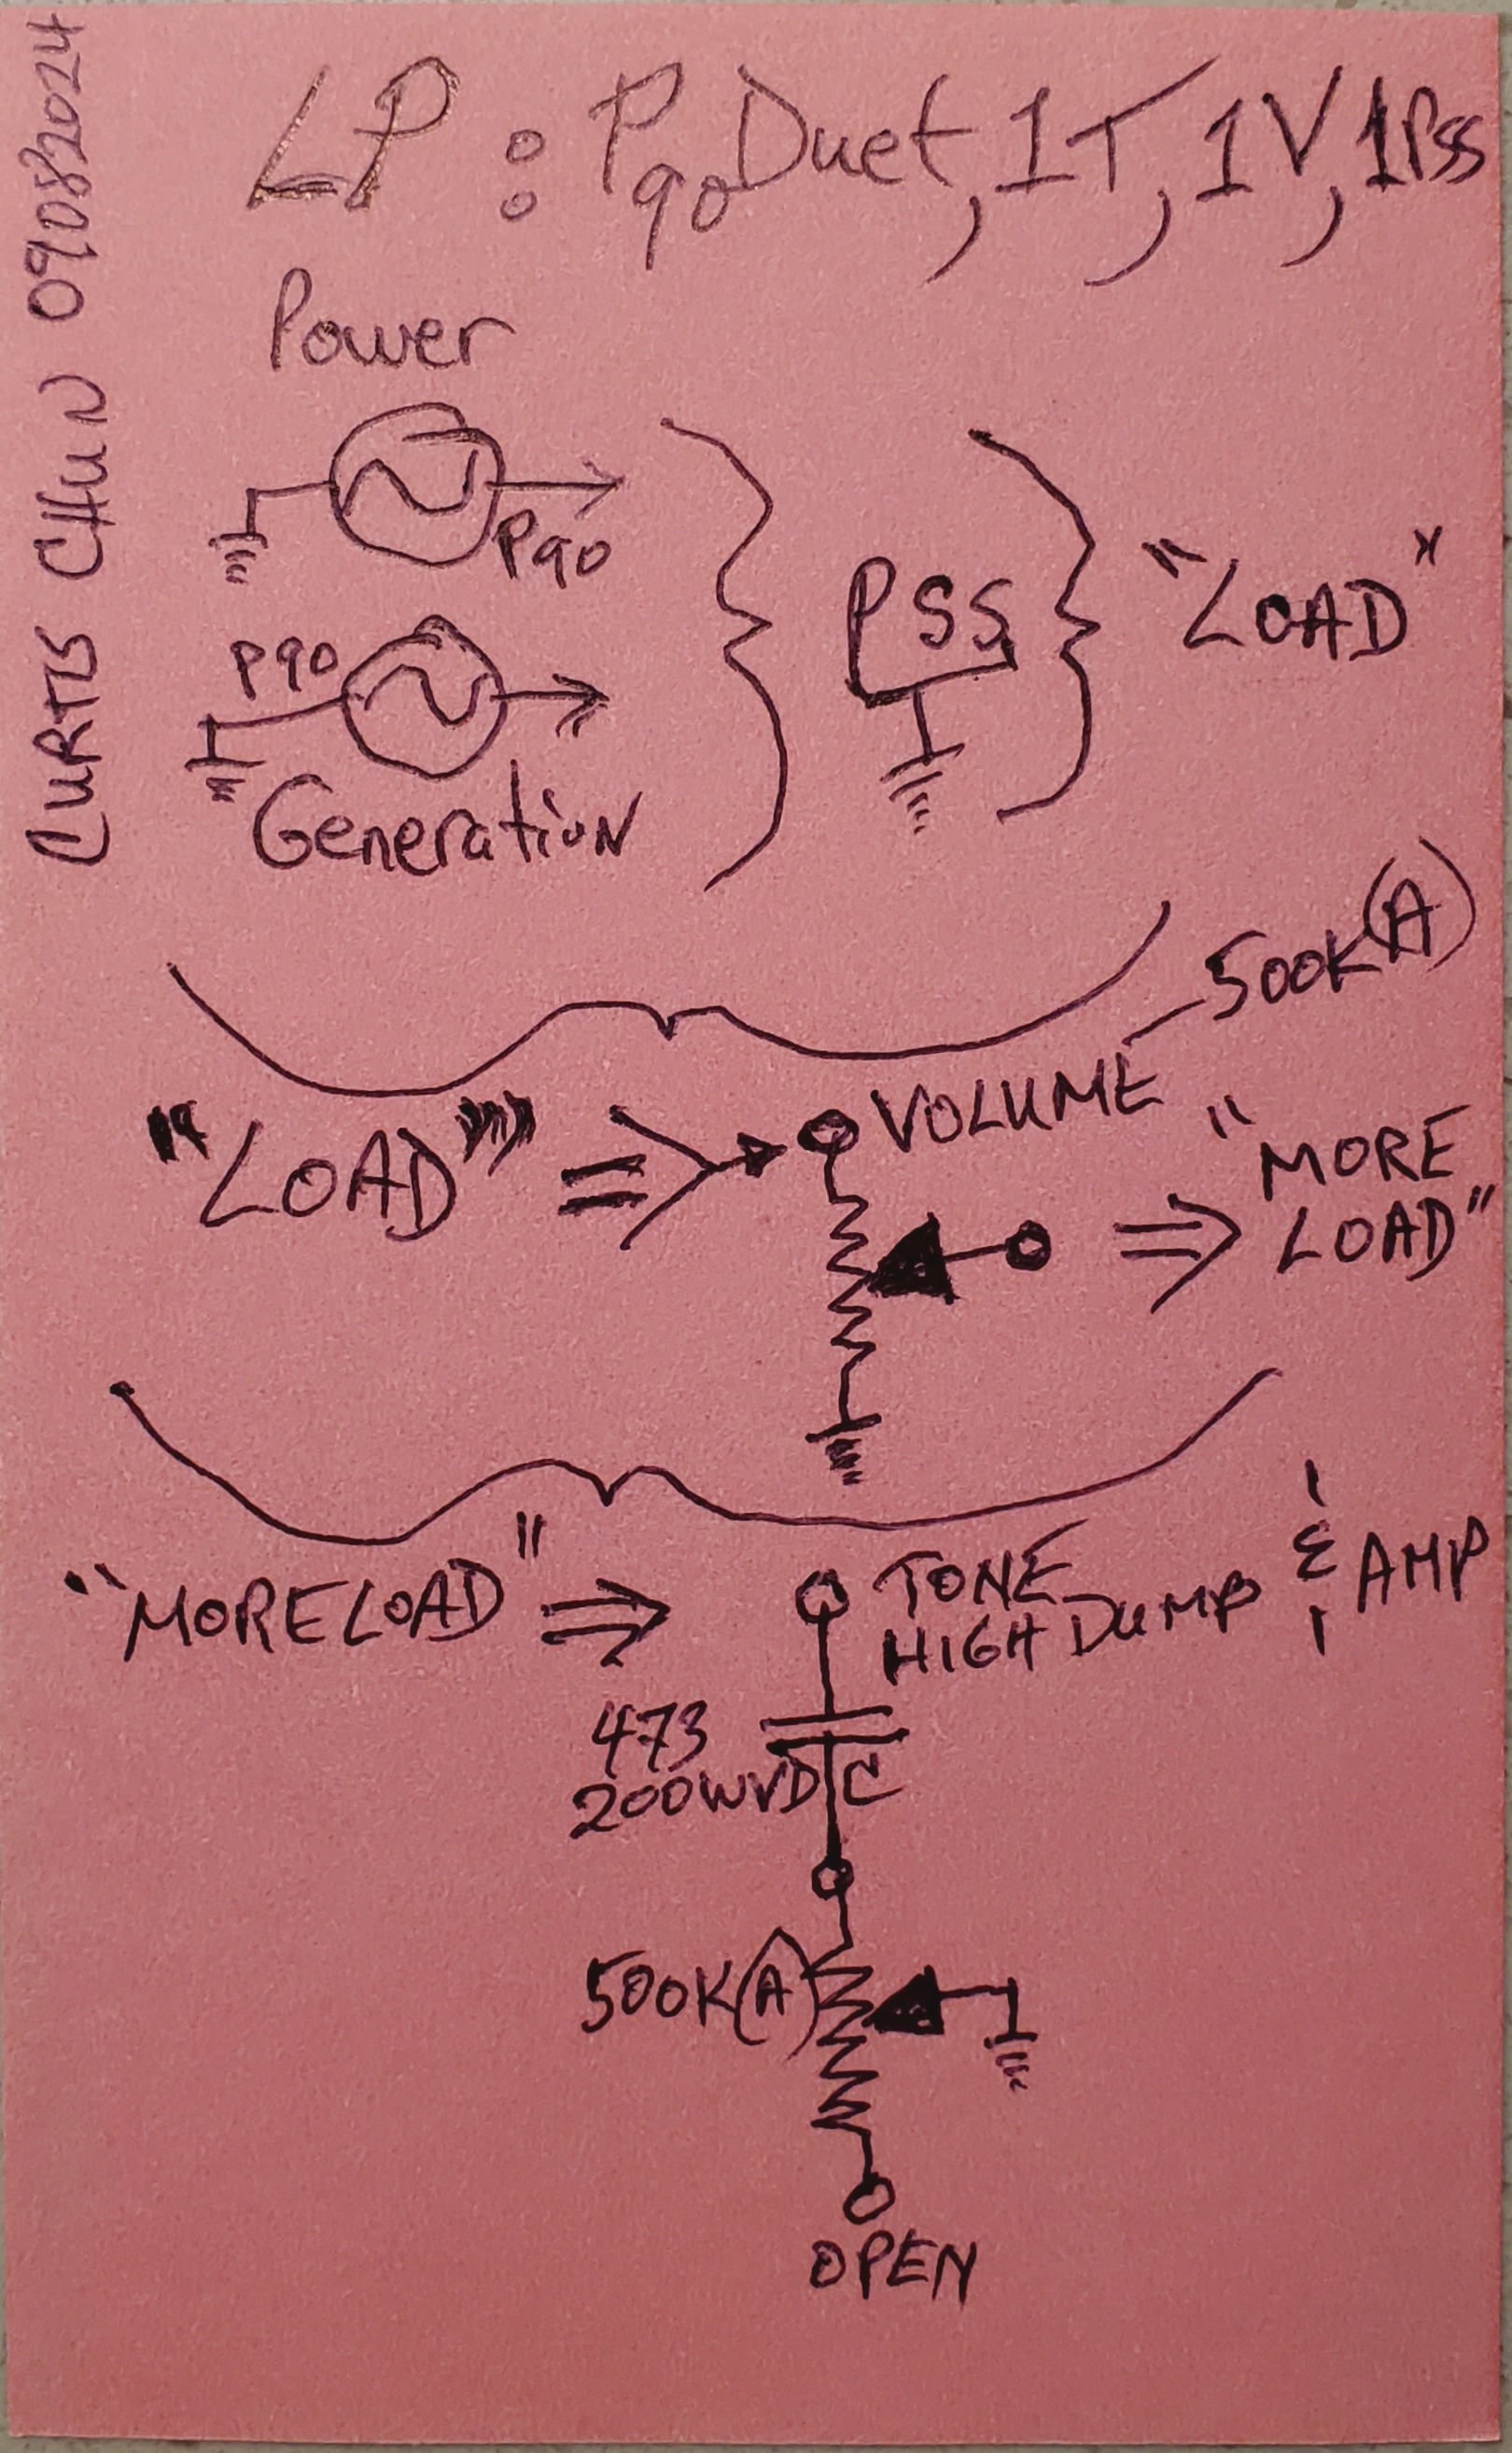 CURTIS CHUN 09082024
LP: P90 Duet, 1T, 1V, 1Pss
Power
P90
P90
Generation
PSS
"LOAD"
500K(A)
"LOAD" ⇒
VOLUME
⇒ "MORE
LOAD"
"MORE LOAD" ⇒
TONE
HIGH DUMP & AMP
473
200WVDC
500K(A)
OPEN